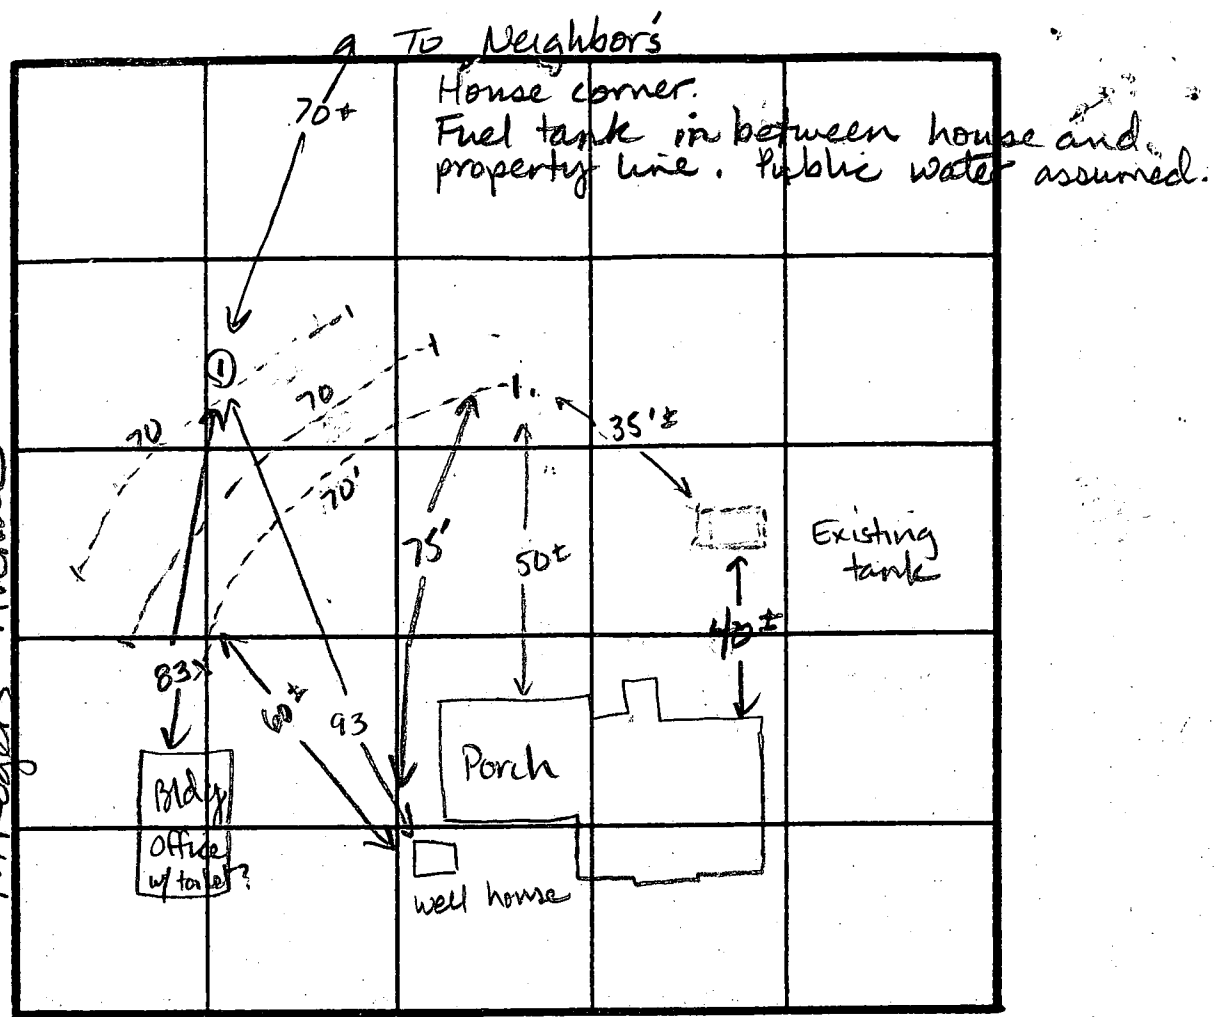 To Neighbor's
70±
House corner.
Fuel tank in between house and
property line. Public water assumed.
1
70
70
70'
35'±
75'
50±
Existing
tank
40±
83±
60±
93
Porch
Bldg
Office
w/ toilet?
well house